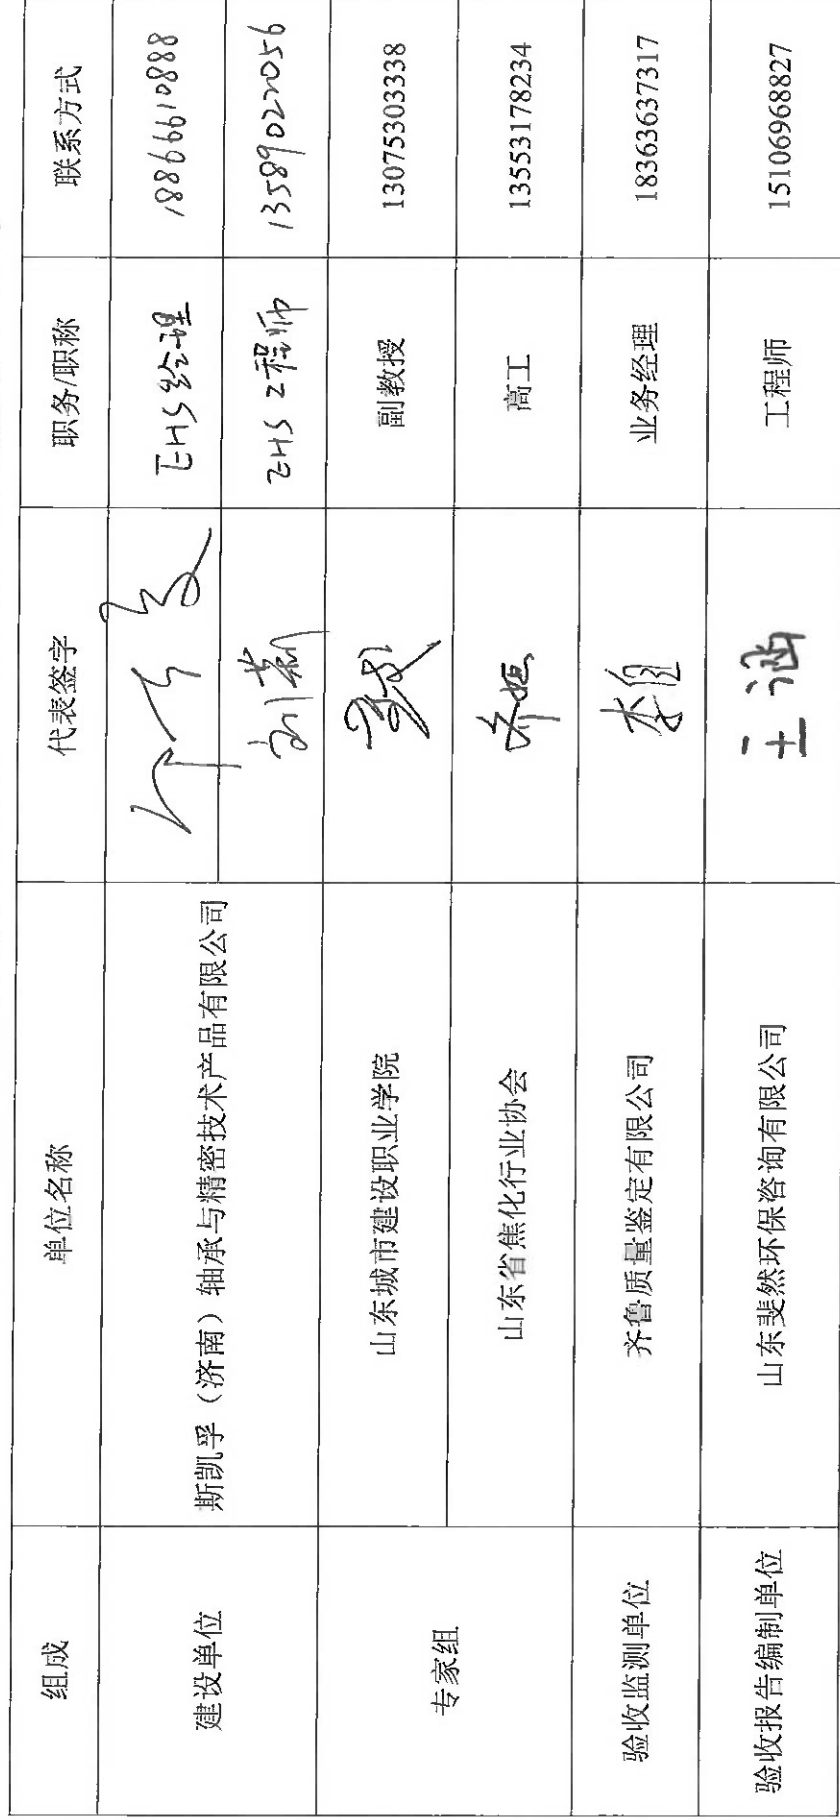 组成 单位名称 代表签字 职务/职称 联系方式
建设单位 斯凯孚（济南）轴承与精密技术产品有限公司 EHS经理 18866610888
刘新 EHS工程师 13589022056
专家组 山东城市建设职业学院 副教授 13075303338
山东省焦化行业协会 高工 13553178234
验收监测单位 齐鲁质量鉴定有限公司 业务经理 18363637317
验收报告编制单位 山东斐然环保咨询有限公司 王涵 工程师 15106968827